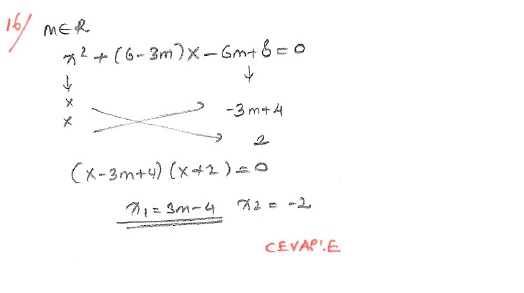 16/ m∈R
x² + (6-3m)x - 6m + 8 = 0
↓ ↓
x -3m+4
x 2
(x-3m+4) (x+2) = 0
x1 = 3m-4 x2 = -2
CEVAP: E